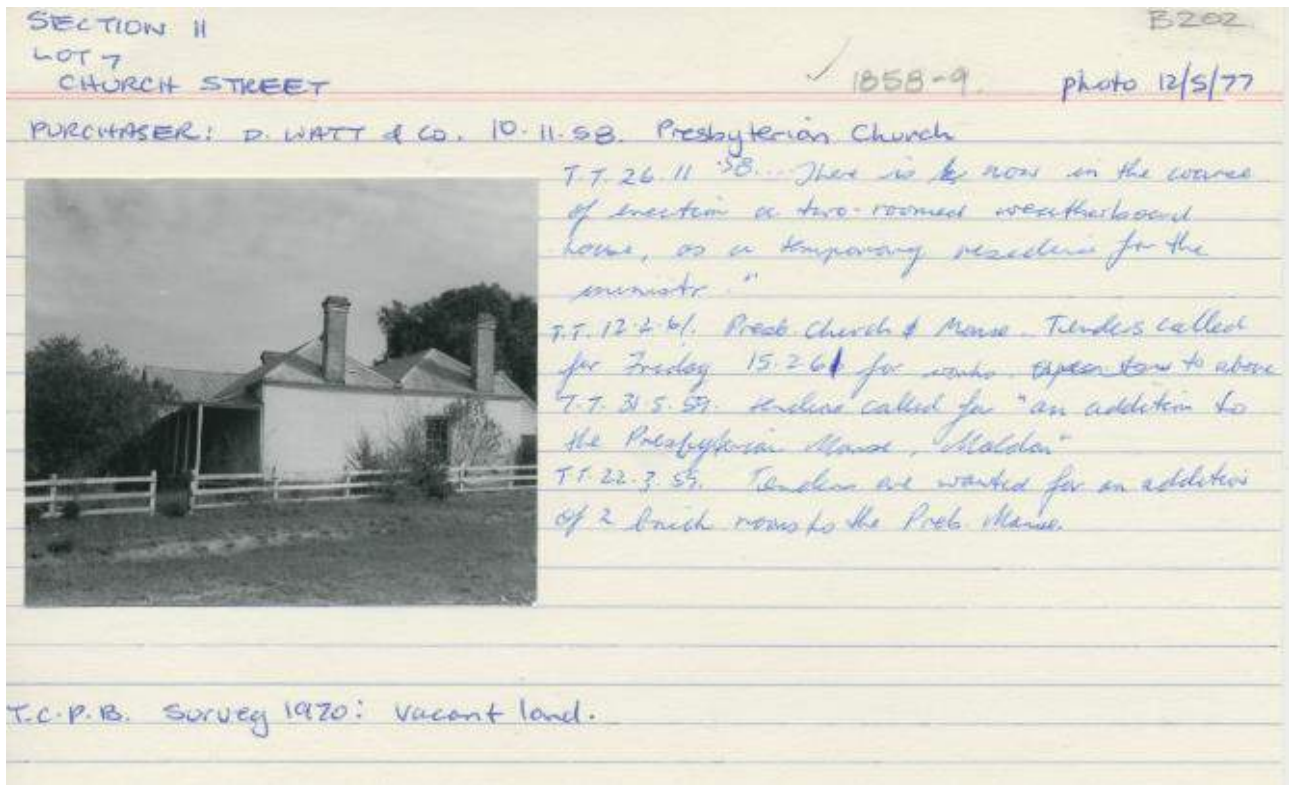 SECTION 11
B202
LOT 7
CHURCH STREET
✓ 1858-9.
photo 12/5/77
PURCHASER: D. WATT & CO. 10.11.58. Presbyterian Church
T.T. 26.11.58... There is now in the course
of erection a two-roomed weatherboard
house, as a temporary residence for the
ministr."
T.T. 12.2.61. Presb. Church & Manse. Tenders called
for Friday 15.2.61 for works to above
T.T. 31.5.59. tenders called for "an addition to
the Presbyterian Manse, Maldon"
T.T. 22.3.59. Tenders are wanted for an addition
of 2 brick rooms to the Preb. Manse.
T.C.P.B. Survey 1970: Vacant land.